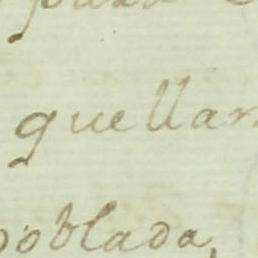 quellan
poblada,